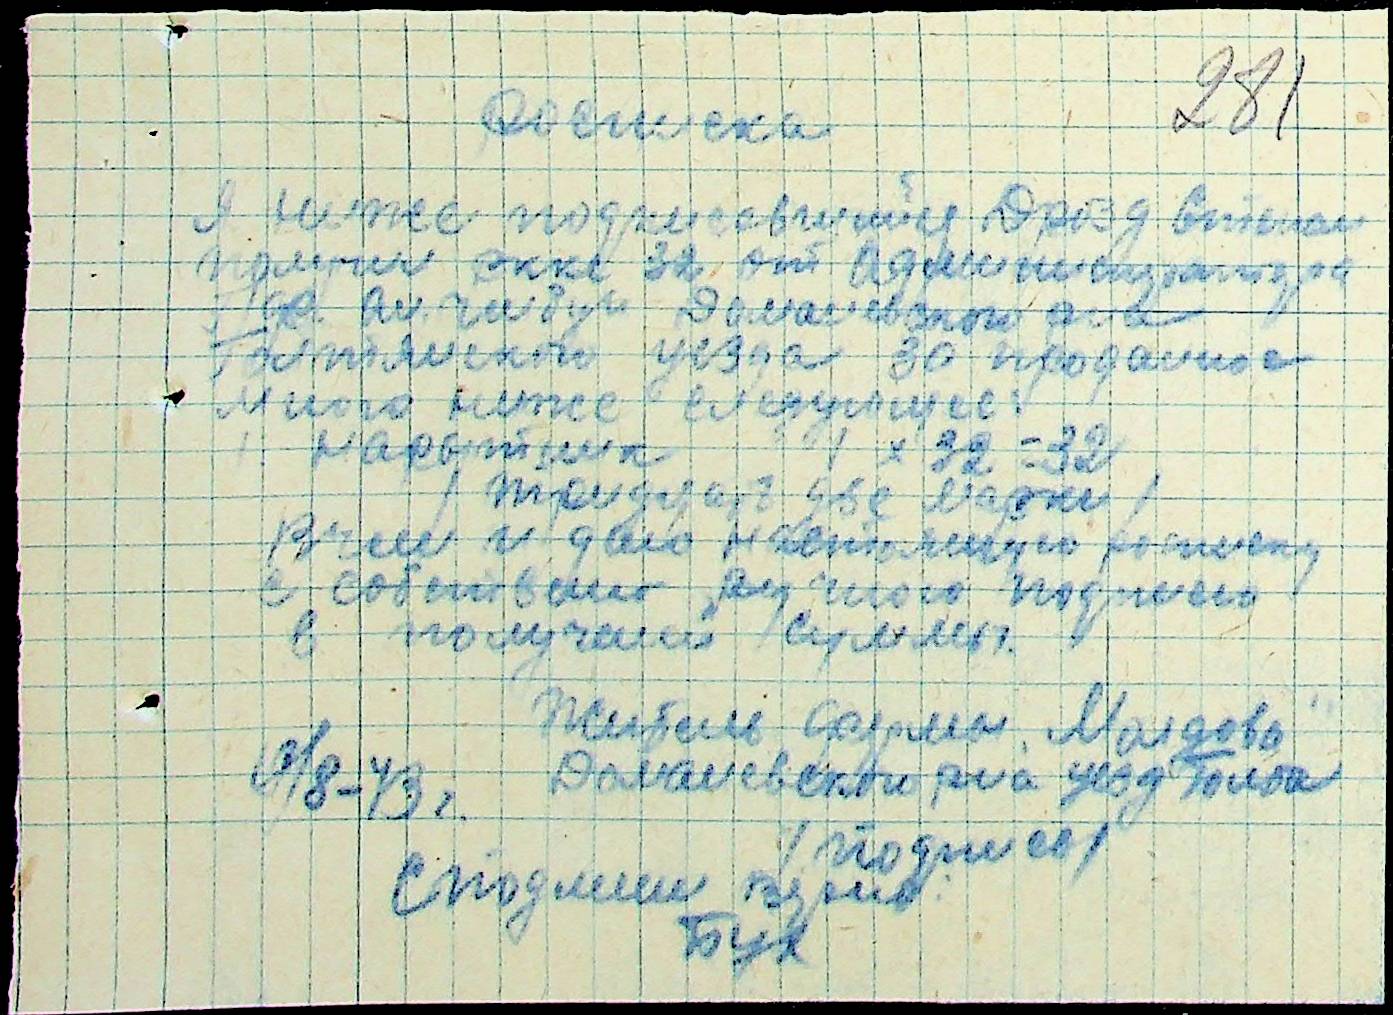 281
Росписка
Я ниже подписавшийся Дрозд Степан
получил экке 32 от администратора
Доманевского р-на
Голтянского уезда за проданное
мною ниже следующее:
1 Нарытник 1 х 32 = 32
/ тридцать две марки /
В чем и даю настоящую росписку
с собственно ручного подписью
в получении суммы.
Житель фермы "Молдова"
/8-43 г. Доманевского р-на уезд Голта
/ подпись /
С подлин верно:
Бух